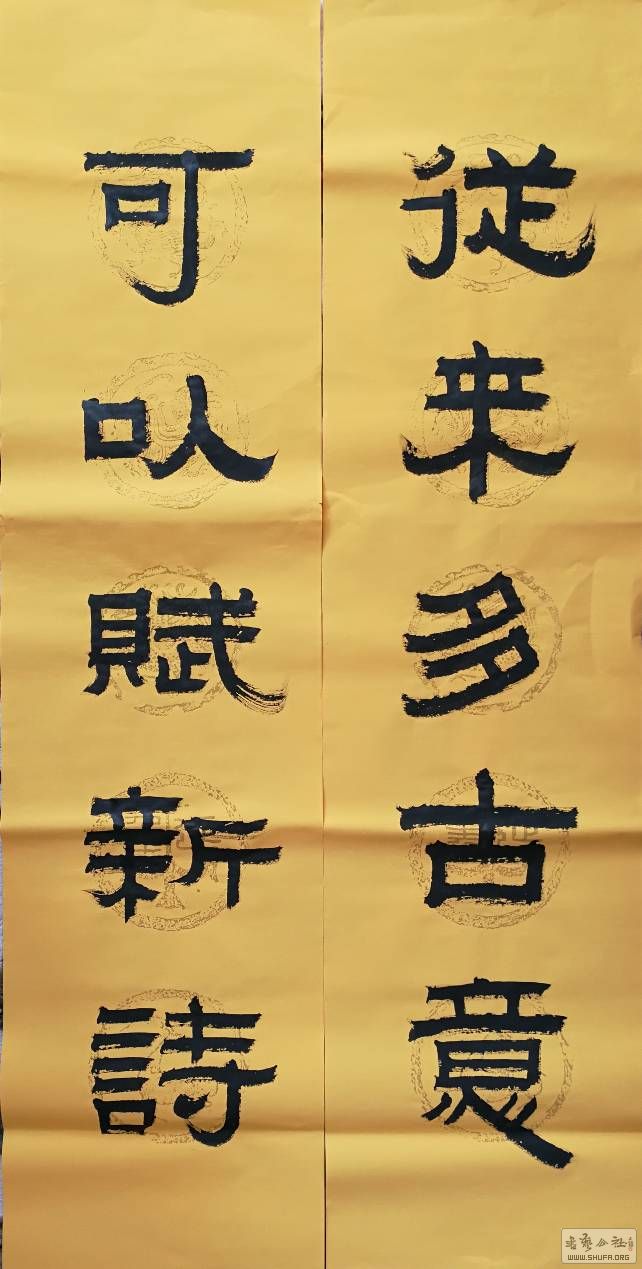 從来多古意
可以賦新詩
書藝公社
WWW.SHUFA.ORG